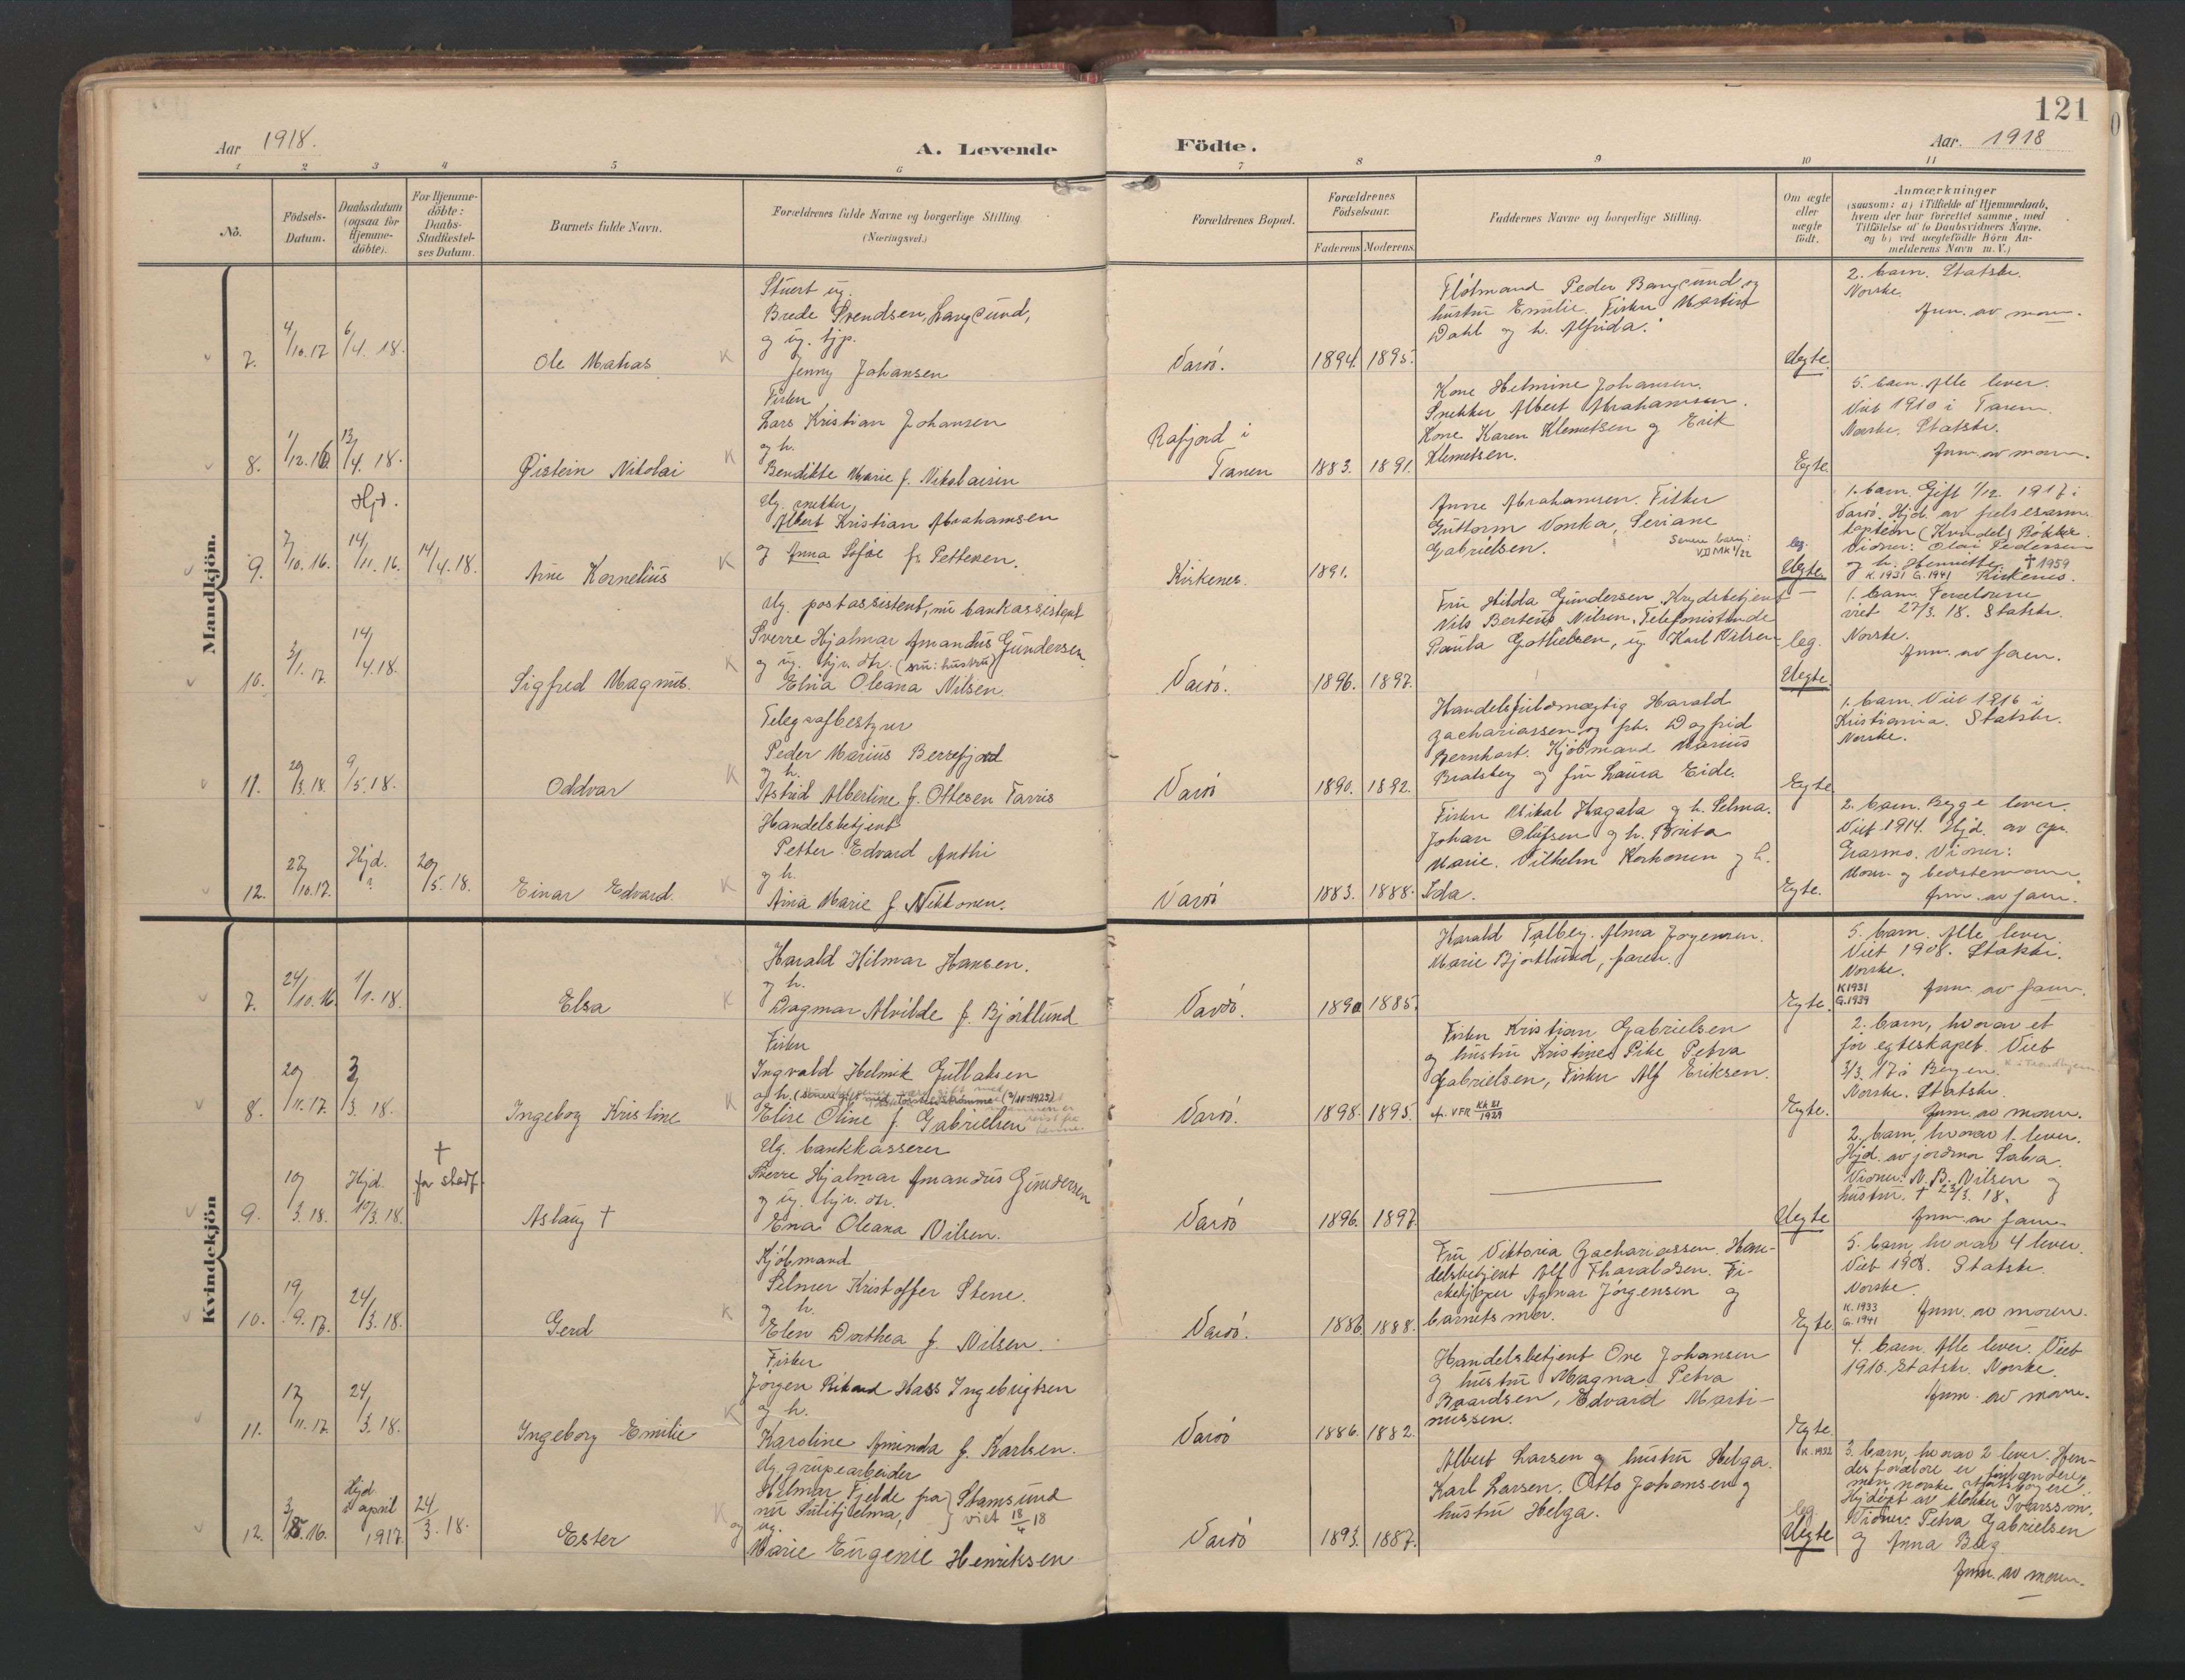 121
Aar 1918.
A. Levende Födte.
Aar. 1918
1 2 3 4 5 6 7 8 9 10 11
No. Födsels-Datum. Daabsdatum (ogsaa for Hjemme-döbte). For Hjemme-döbte: Daabs-Stadfæstel-ses Datum. Barnets fulde Navn. Forældrenes fulde Navne og borgerlige Stilling (Næringsvei.) Forældrenes Bopæl. Forældrenes Födselsaar. Faderens Moderens. Faddernes Navne og borgerlige Stilling. Om ægte eller uægte födt. Anmærkninger (saasom: a) i Tilfælde af Hjemmedaab, hvem der har forrettet samme, med Tilföielse af to Daabsvidners Navne, og b) ved uægtefödte Börn An-melderens Navn m. V.)
Mandkjön.
7. 4/10.17 6/4.18. Ole Matias K
Stuert ug.
Brede Svendsen, Langsund,
og ug. tjp.
Jenny Johansen
Vardö. 1894. 1895.
Flötmand Peder Bangsund og
hustru Emilie. Fisker Martin
Dahl og h. Alfrida.
Uegte.
2. barn. Statsk.
Norske.
Anm. av moren.
8. 1/12.16 13/4.18. Øistein Nikolai K
Fisker
Lars Kristian Johansen
og h.
Bendikte Marie f. Nikolaisen
Rafjord i
Tanen 1883. 1891.
Kone Helmine Johansen.
Snekker Albert Abrahamsen.
Kone Karen Klemetsen og Erik
Klemetsen.
Egte.
5. barn. Alle lever.
Viet 1910 i Tanen.
Norske. Statsk.
Anm. av moren.
Hjd.
9. 7/10.16. 14/11.16. 14/4.18. Arne Kornelius K
Ug. snekker
Albert Kristian Abrahamsen
og Anna Sofie f. Pettersen.
Kirkenes. 1891.
Anne Abrahamsen. Fisker
Guttorm Vonka, Seriane
Gabrielsen.
Senere barn:
leg.
Uegte
1. barn. Gift 1/12. 1917 i
Vardö. Hjd. av
Vidner: Olai Pedersen
og h. Henriette. † 1959
K. 1931 G. 1941 Kirkenes.
10. 3/1.17. 14/4.18. Sigfred Magnus. K
Ug. postassistent, nu bankassistent
Sverre Hjalmar Amandus Gundersen
og ug. hjv. dtr. (nu: hustru)
Elna Oleana Nilsen.
Vardö. 1896. 1897.
Fru Hilda Gundersen. Krydsbetjent
Nils Berteus Nilsen. Telefonistinde
Paula Gotliebsen, ug Karl Nilsen
leg.
Uegte.
1. barn. Foreldrene
viet 27/3.18. Statsk.
Norske.
Anm. av faren.
11. 20/3.18. 9/5.18. Oddvar K
Telegrafbestyrer
Peder Marius Berrefjord
og h.
Astrid Albertine f. Ottesen Farris
Vardö 1890. 1892.
Handelsfuldmægtig Harald
Zachariassen og frk. Dagfrid
Bernhart. Kjöbmand Marius
Bratsberg og fru Laura Eide.
Egte
1. barn. Viet 1916 i
Kristiania. Statsk.
Norske.
12. 27/10.17. Hjd. ? 20/5.18. Einar Edvard. K
Handelsbetjent
Petter Edvard Anthi
og h.
Aina Marie f. Nikkonen.
Vardö 1883. 1888.
Fisker Mikal Hagala og h. Selma.
Johan Olufsen og h. Brita
Marie. Vilhelm Korhonen og h.
Ida.
Egte.
2. barn. Begge lever.
Viet 1914. Hjd. av
Erasmo. Vidner:
Moren og bedstemoren
Anm. av faren.
Kvindekjön
7. 24/10.16. 1/1.18. Elsa K
Harald Hilmar Hansen.
og h.
Dagmar Alvilde f. Bjørklund
Vardö. 1890 1885.
Harald Talbey. Alma Jørgensen.
Marie Bjorklund, faren.
Egte.
5. barn. Alle lever
Viet 1908. Statsk.
Norske.
K1931 G.1939
Anm. av faren.
8. 20/11.17. 3/3.18. Ingeborg Kristine K
Fisker
Ingvald Helmik Gullaksen
og h.
Elise Oline f. Gabrielsen
Vardö. 1898. 1895.
Fisker Kristian Gabrielsen
og hustru Kristine. Pike Petra
Gabrielsen, Fisker Alf Eriksen.
Egte.
2. barn, hvorav et
før egteskapet. Viet
3/3.17 i Bergen.
Norske. Statsk.
Anm. av moren.
9. 10/3.18. Hjd. 10/3.18. † før stadf. Aslaug †
Ug. bankkasserer
Sverre Hjalmar Amandus Gundersen
og ug. hjv. dtr.
Elna Oleana Nilsen.
Vardö 1896. 1897.
Uegte
2. barn, hvorav 1. lever.
Hjd. av jordmor Saba.
Vidner: N. B. Nilsen og
hustru. † 23/3.18.
Anm. av faren
10. 19/9.17. 24/3.18. Gerd K
Kjöbmand
Selmer Kristoffer Stene.
og h.
Elen Dorthea f. Nilsen.
Vardö. 1886. 1888.
Fru Viktoria Zachariassen. Han-
delsbetjent Alf Tharaldsen. Fi-
skekjöper Agnar Jørgensen og
barnets mor.
Egte.
5. barn, hvorav 4 lever.
Viet 1908. Statsk.
Norske
K. 1933 G. 1941
Anm. av moren.
11. 17/11.17. 24/3.18. Ingeborg Emilie K
Fisker
Jörgen Rikard Hass Ingebrigtsen
og h.
Karoline Aminda f. Karlsen.
Vardö 1886. 1882.
Handelsbetjent Ove Johansen
og hustru Magna. Petra
Baardsen, Edvard Marti-
nussen.
Egte.
4. barn. Alle lever. Viet
1910. Statsk. Norske.
Anm. av moren.
12. 3/8.16. Hjd i april 1917. 24/3.18. Ester K
Ug. grupearbeider
Hilmar Fjelde fra Stamsund
nu Sulitjelma, viet 18/4 18
og ug.
Marie Eugenie Henriksen
Vardö 1893. 1887.
Albert Larsen og hustru Helga.
Karl Larsen. Otto Johansen og
hustru Helga.
K. 1932
leg.
Uegte
3. barn, hvorav 2 lever. Hen-
des forældre er finlændere,
men norske statsborgere.
Hjdöpt av klokker Ivarsson.
Vidner: Petra Gabrielsen
og Anna Berg
Anm. av moren.